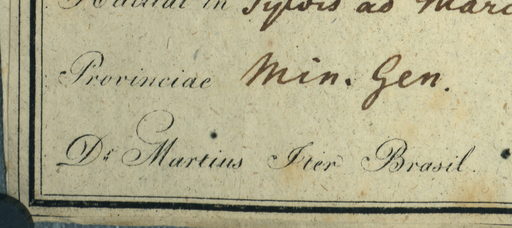 Habitat in Sylvis ad
Provinciae Min. Gen.
Dr Martius Iter Brasil.